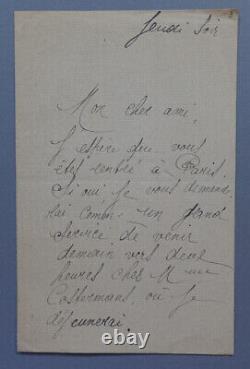 Jeudi Soir
Mon cher ami,
J'espère que vous
êtes rentré à Paris.
Si oui, je vous demand
rai comme un grand
service, de venir
demain vers deux
heures chez Mme
Costermans, où je
déjeunerai.
© taaora.fr